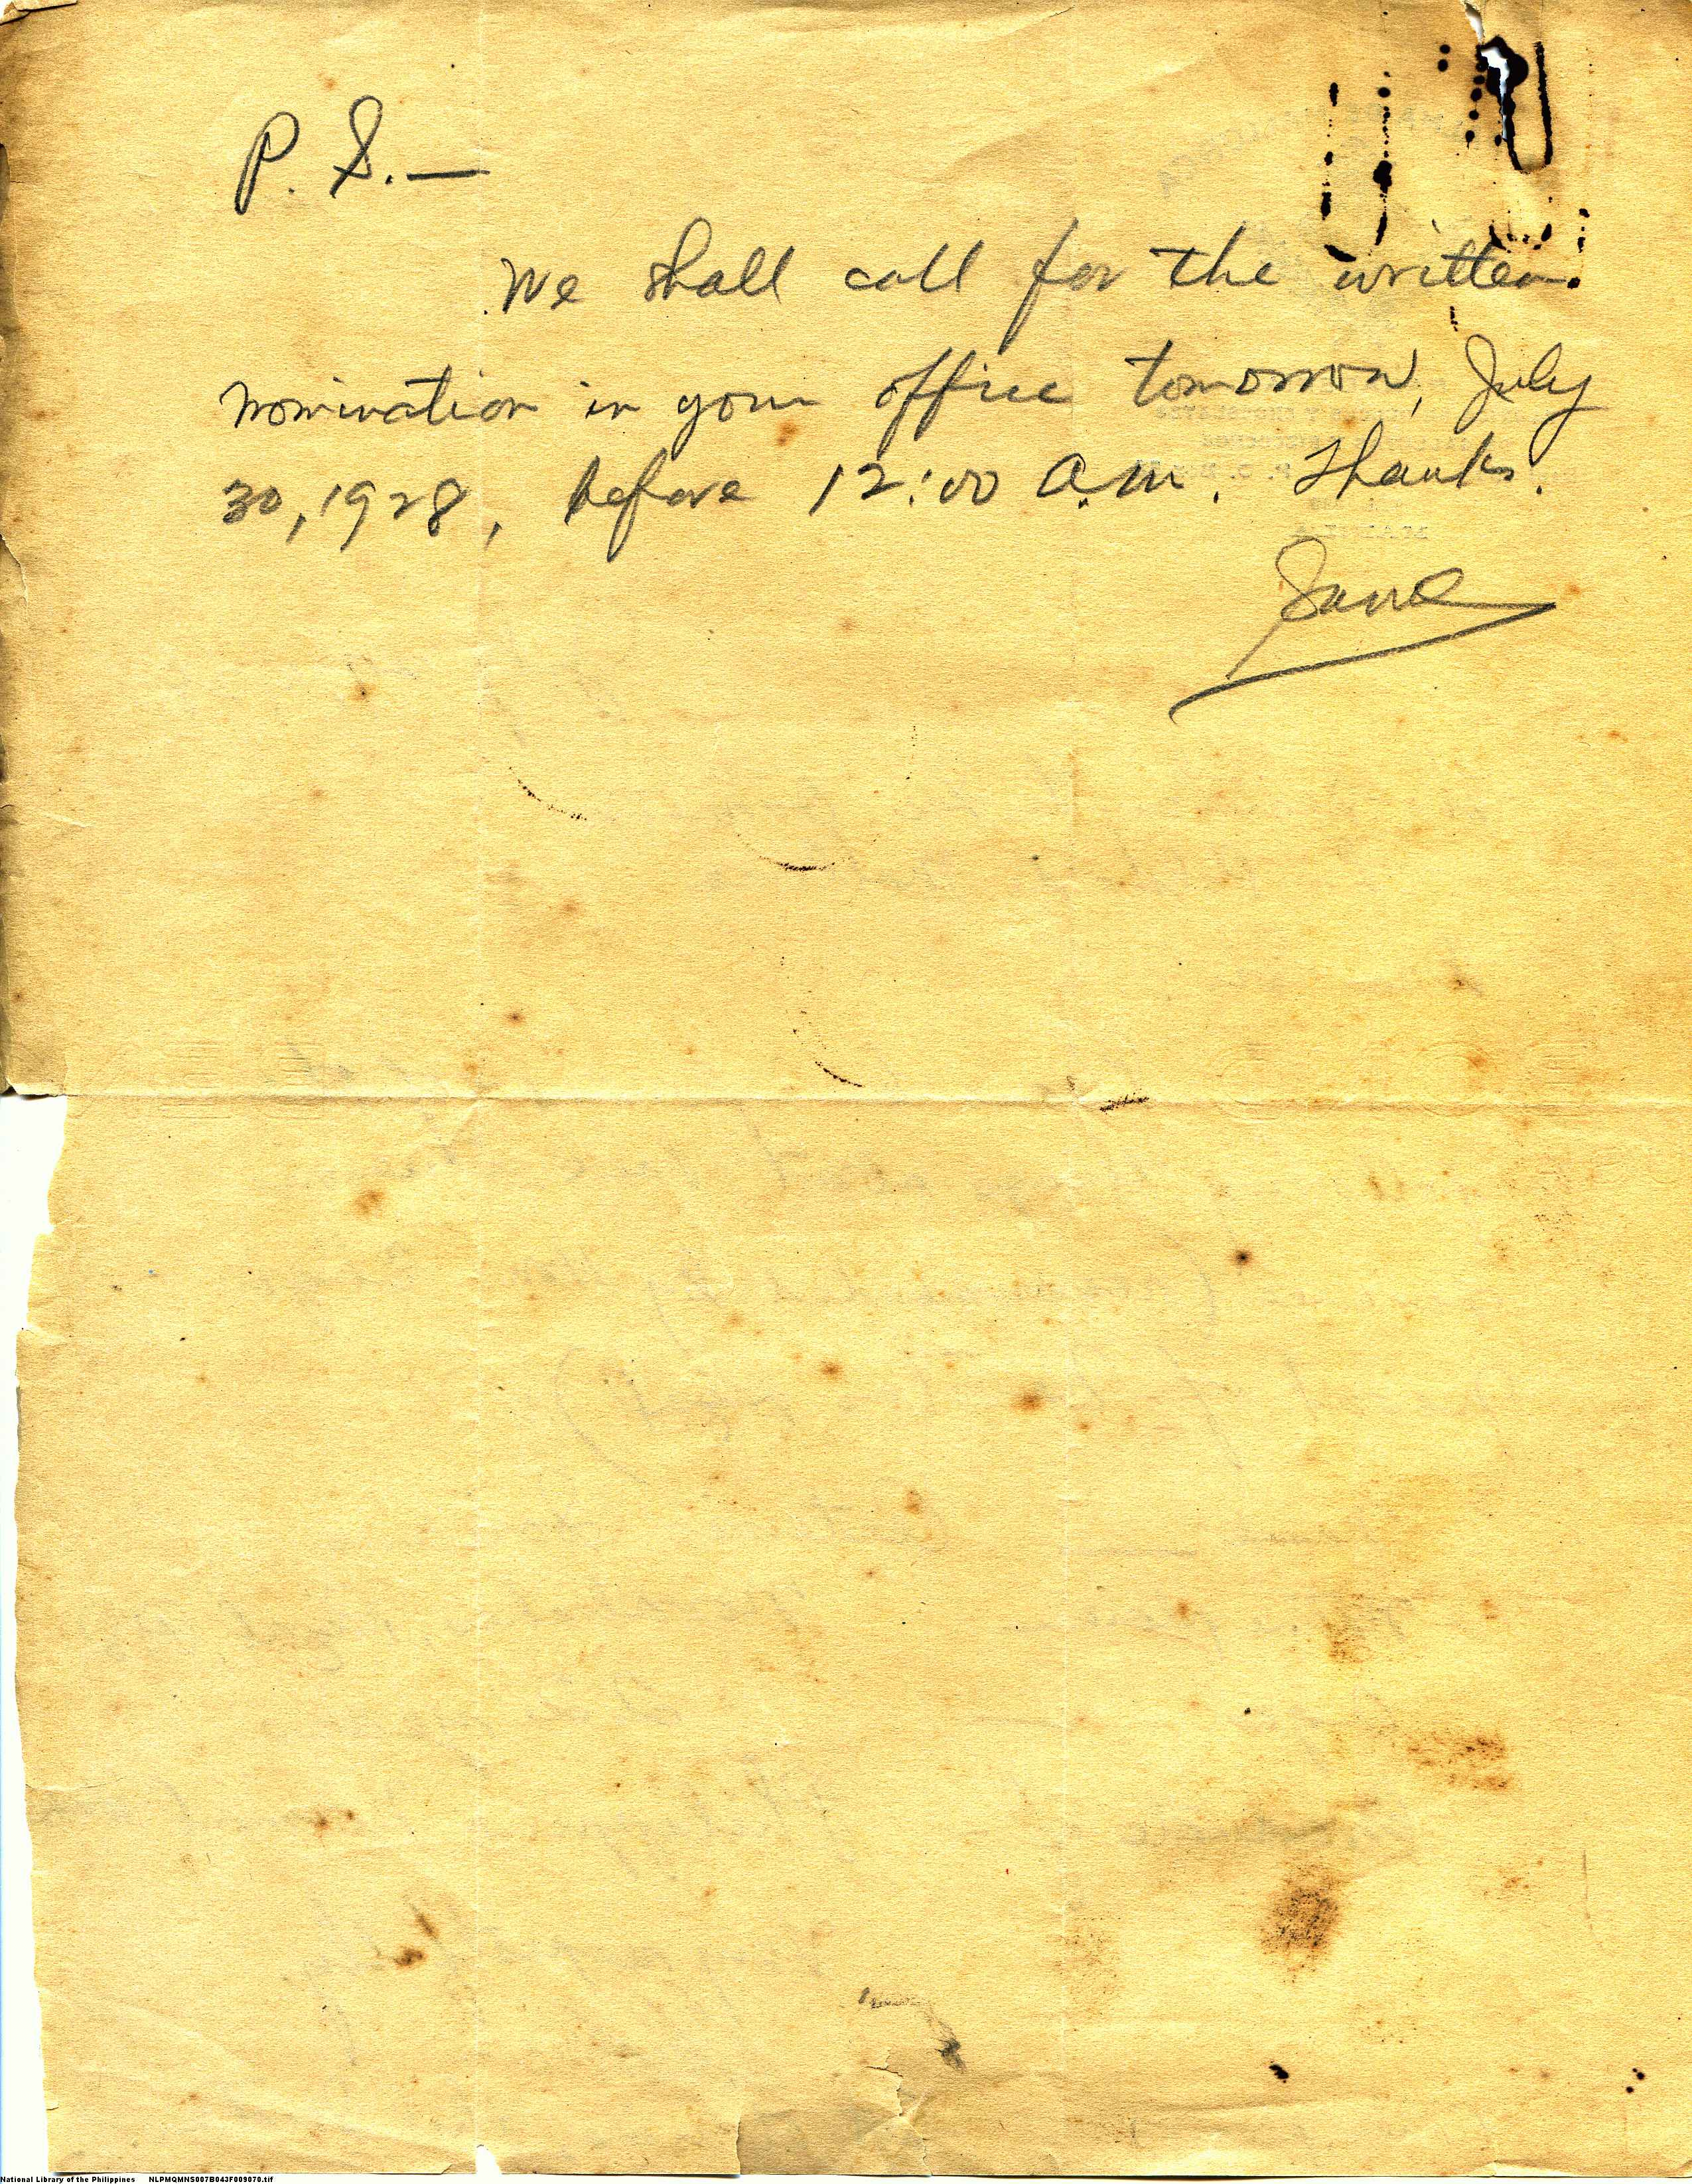 P. S. —
We shall call for the written
nomination in your office tomorrow, July
30, 1928, before 12:00 a.m. Thanks.
Same
National Library of the Philippines NLPMQMNS007B043F009070.tif